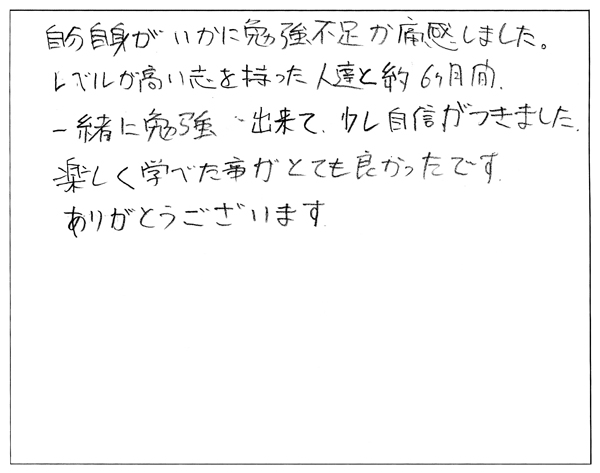 自分自身がいかに勉強不足か痛感しました。
レベルが高い志を持った人達と約6ヶ月間、
一緒に勉強出来て、少し自信がつきました。
楽しく学べた事がとても良かったです。
ありがとうございます。